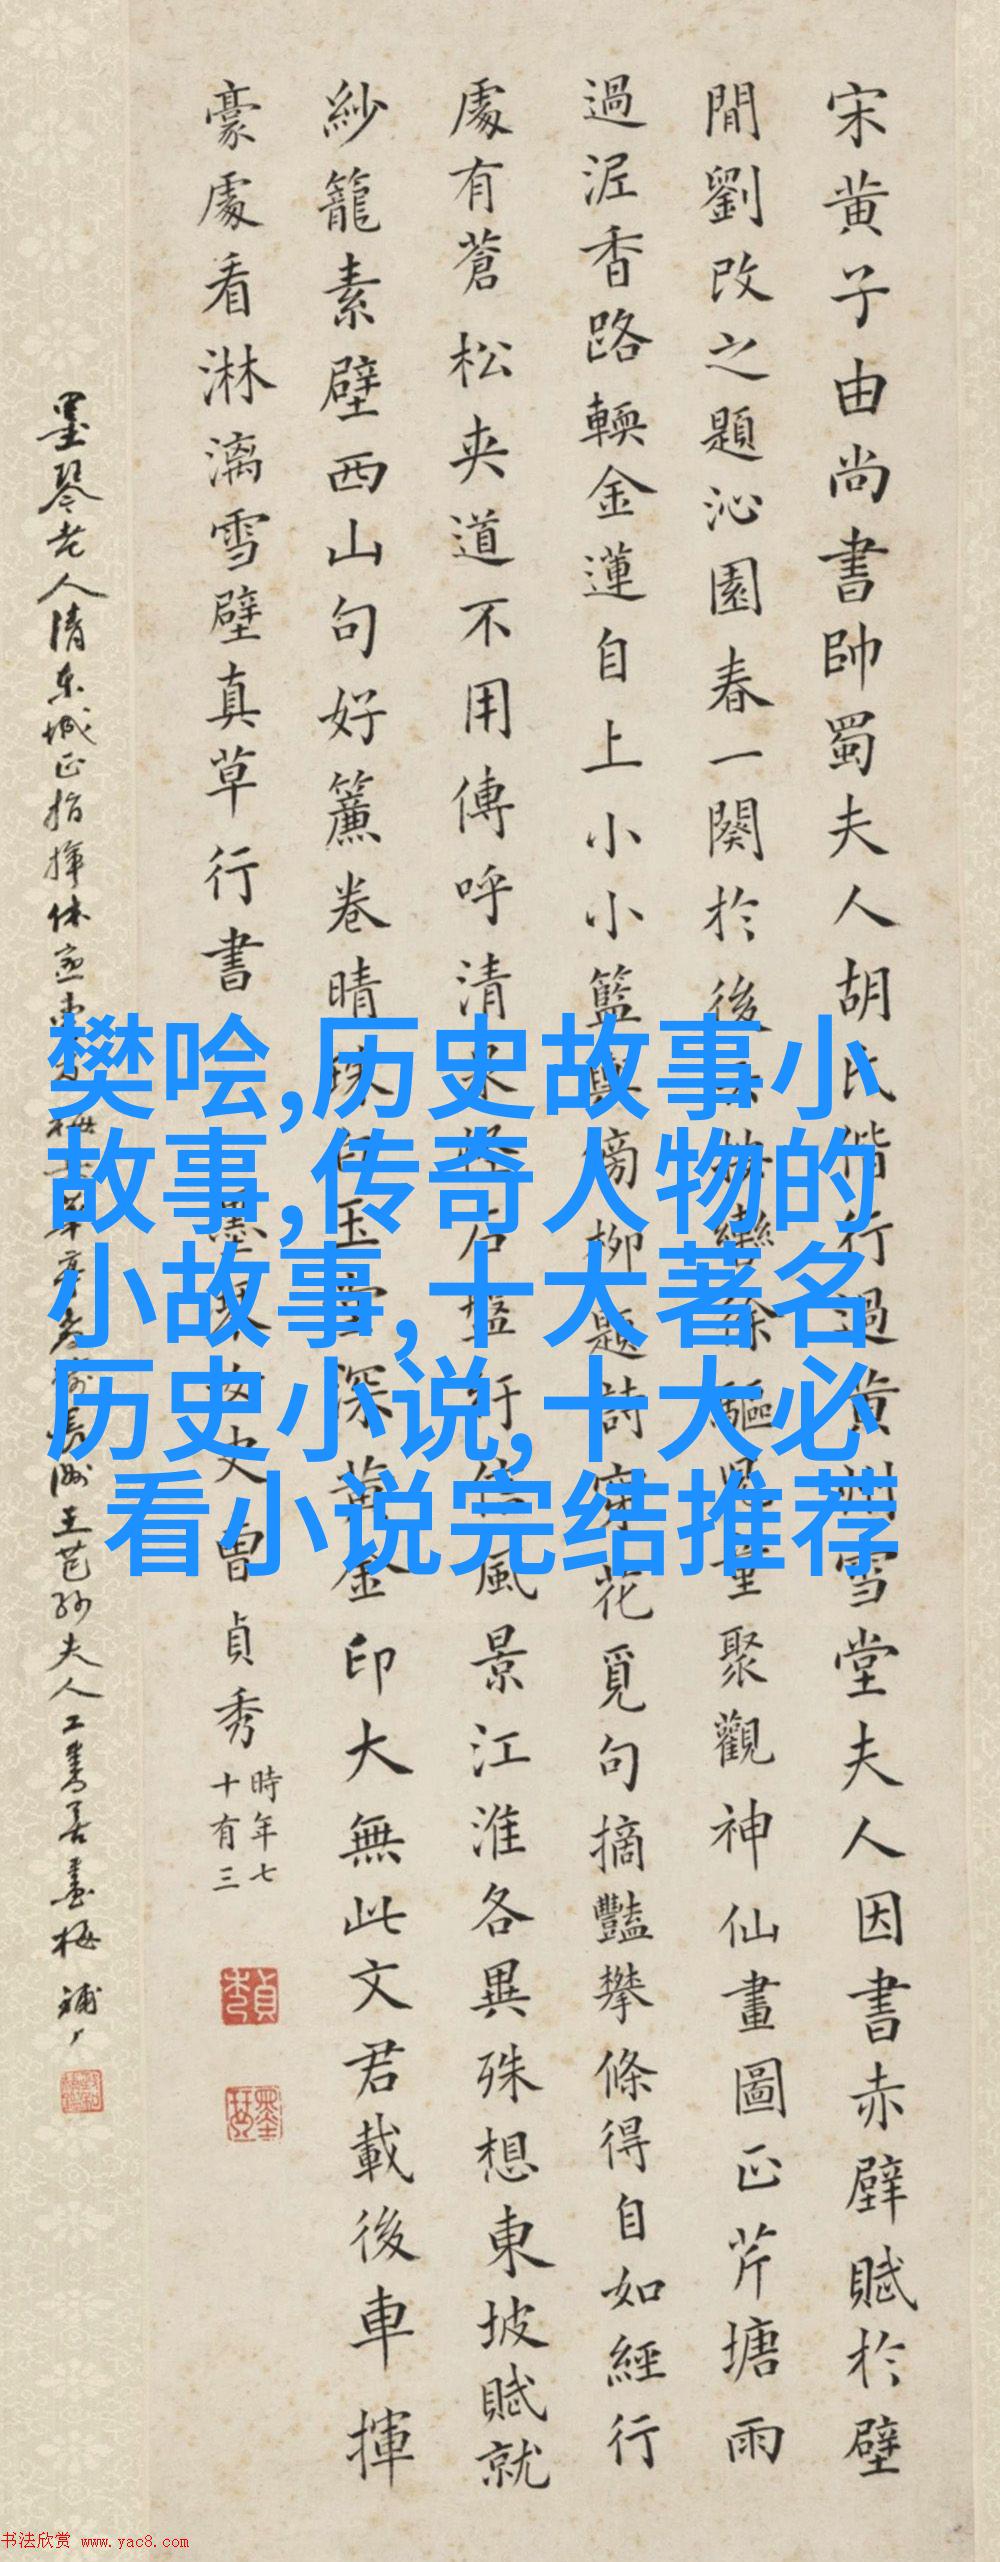 宋黄子由尚書帥蜀夫人胡氏偕行過黄州雪堂夫人因書赤壁賦於壁
間劉改之題沁園春一闋於後云按轡徐驅兒童聚觀神仙畫圖正芹塘雨
過泥香路輭金蓮自上小小籃輿傍柳題詩穿花覓句摘豔攀條得自如經行
處有蒼松夾道不用傳呼清泉怪石盤紆信風景江淮各異殊想東坡賦就
紗籠素壁西山句好簾卷晴珠白玉堂深黄金印大無此文君載後車揮
豪處看淋漓雪壁真草行書 墨琴女史曹貞秀
時年七
十有三
墨琴老人清東城正指揮休 長洲王芑孫夫人工書善畫梅
樊哙,历史故事小
故事,传奇人物的
小故事,十大著名
历史小说,十大必
看小说完结推荐
书法欣赏 www.yac8.com